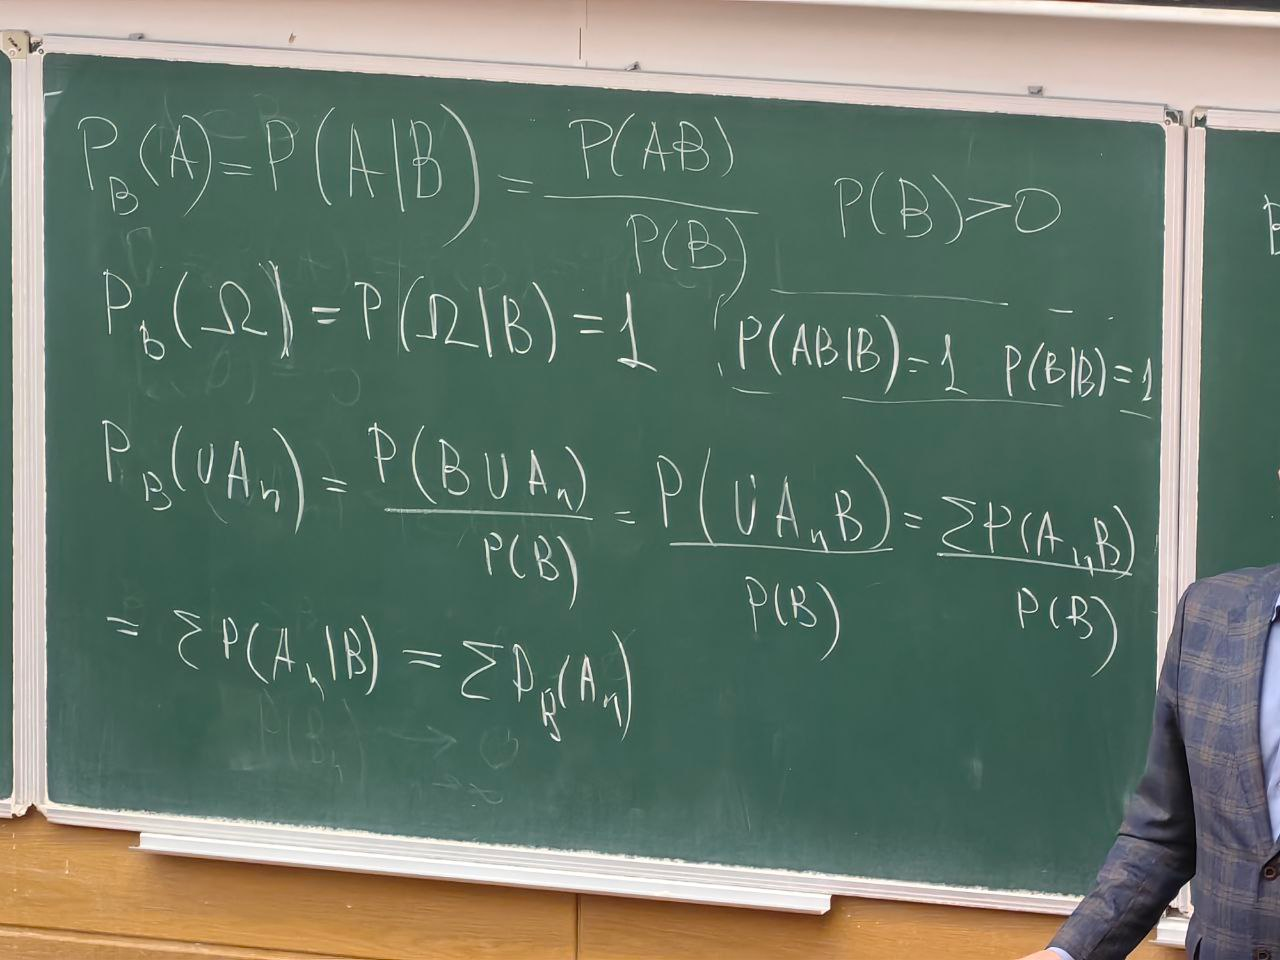 P_B(A) = P(A|B) = P(AB) / P(B)    P(B) > 0
P_B(Ω) = P(Ω|B) = 1    P(AB|B) = 1    P(B|B) = 1
P_B(∪A_n) = P(B∪A_n) / P(B) = P(∪A_nB) / P(B) = ΣP(A_nB) / P(B)
= ΣP(A_n|B) = ΣP_B(A_n)